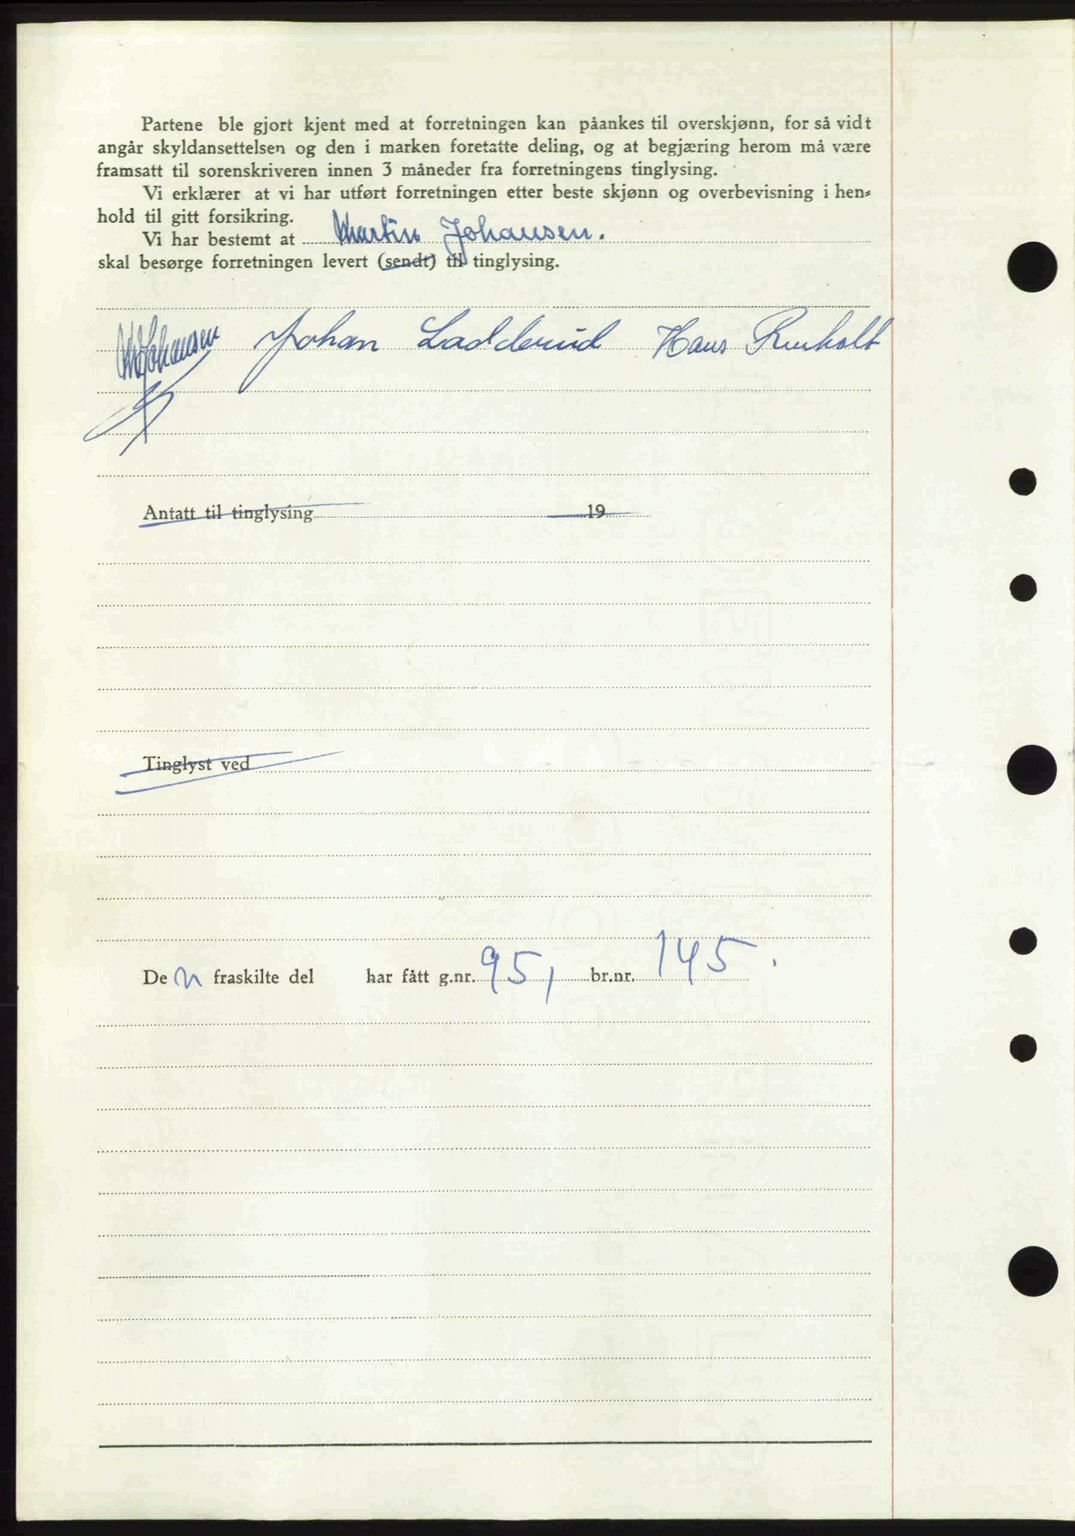 Partene ble gjort kjent med at forretningen kan påankes til overskjønn, for så vidt
angår skyldansettelsen og den i marken foretatte deling, og at begjæring herom må være
framsatt til sorenskriveren innen 3 måneder fra forretningens tinglysing.
Vi erklærer at vi har utført forretningen etter beste skjønn og overbevisning i hen-
hold til gitt forsikring.
Vi har bestemt at Martin Johansen.
skal besørge forretningen levert (sendt) til tinglysing.
M Johansen Johan Ladderud Hans
Antatt til tinglysing 19
Tinglyst ved
Den fraskilte del har fått g.nr. 95, br.nr. 145.